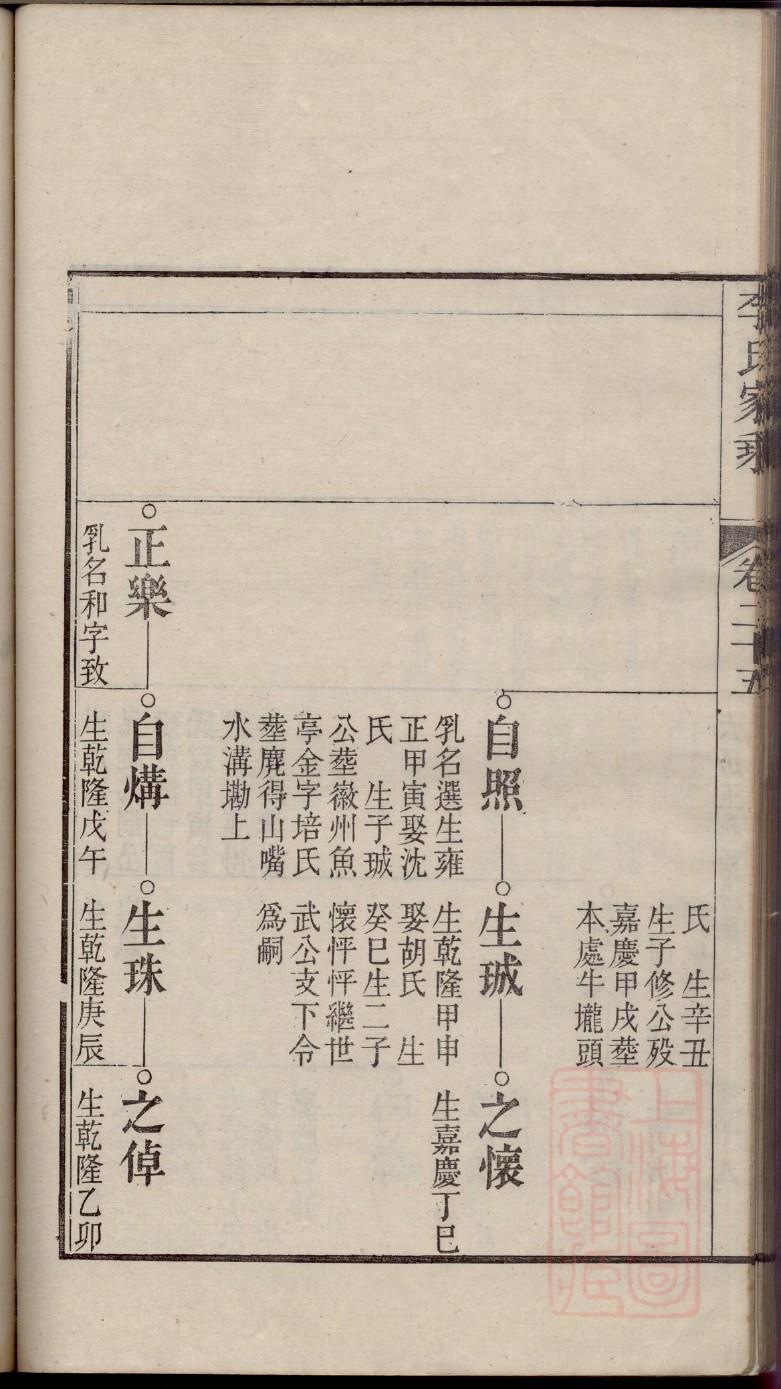 李氏家乘
卷二十五
氏　生辛丑
生子修公殁
嘉慶甲戌塟
本處牛壠頭
自照
乳名選生雍
正甲寅娶沈
氏　生子珹
公塟徽州魚
亭金字培氏
塟麂得山嘴
水溝墈上
生珹
生乾隆甲申
娶胡氏　生
癸巳生二子
懷怦怦繼世
武公支下令
為嗣
之懷
生嘉慶丁巳
正樂
乳名和字致
自煹
生乾隆戊午
生珠
生乾隆庚辰
之倬
生乾隆乙卯
上海圖
書館藏